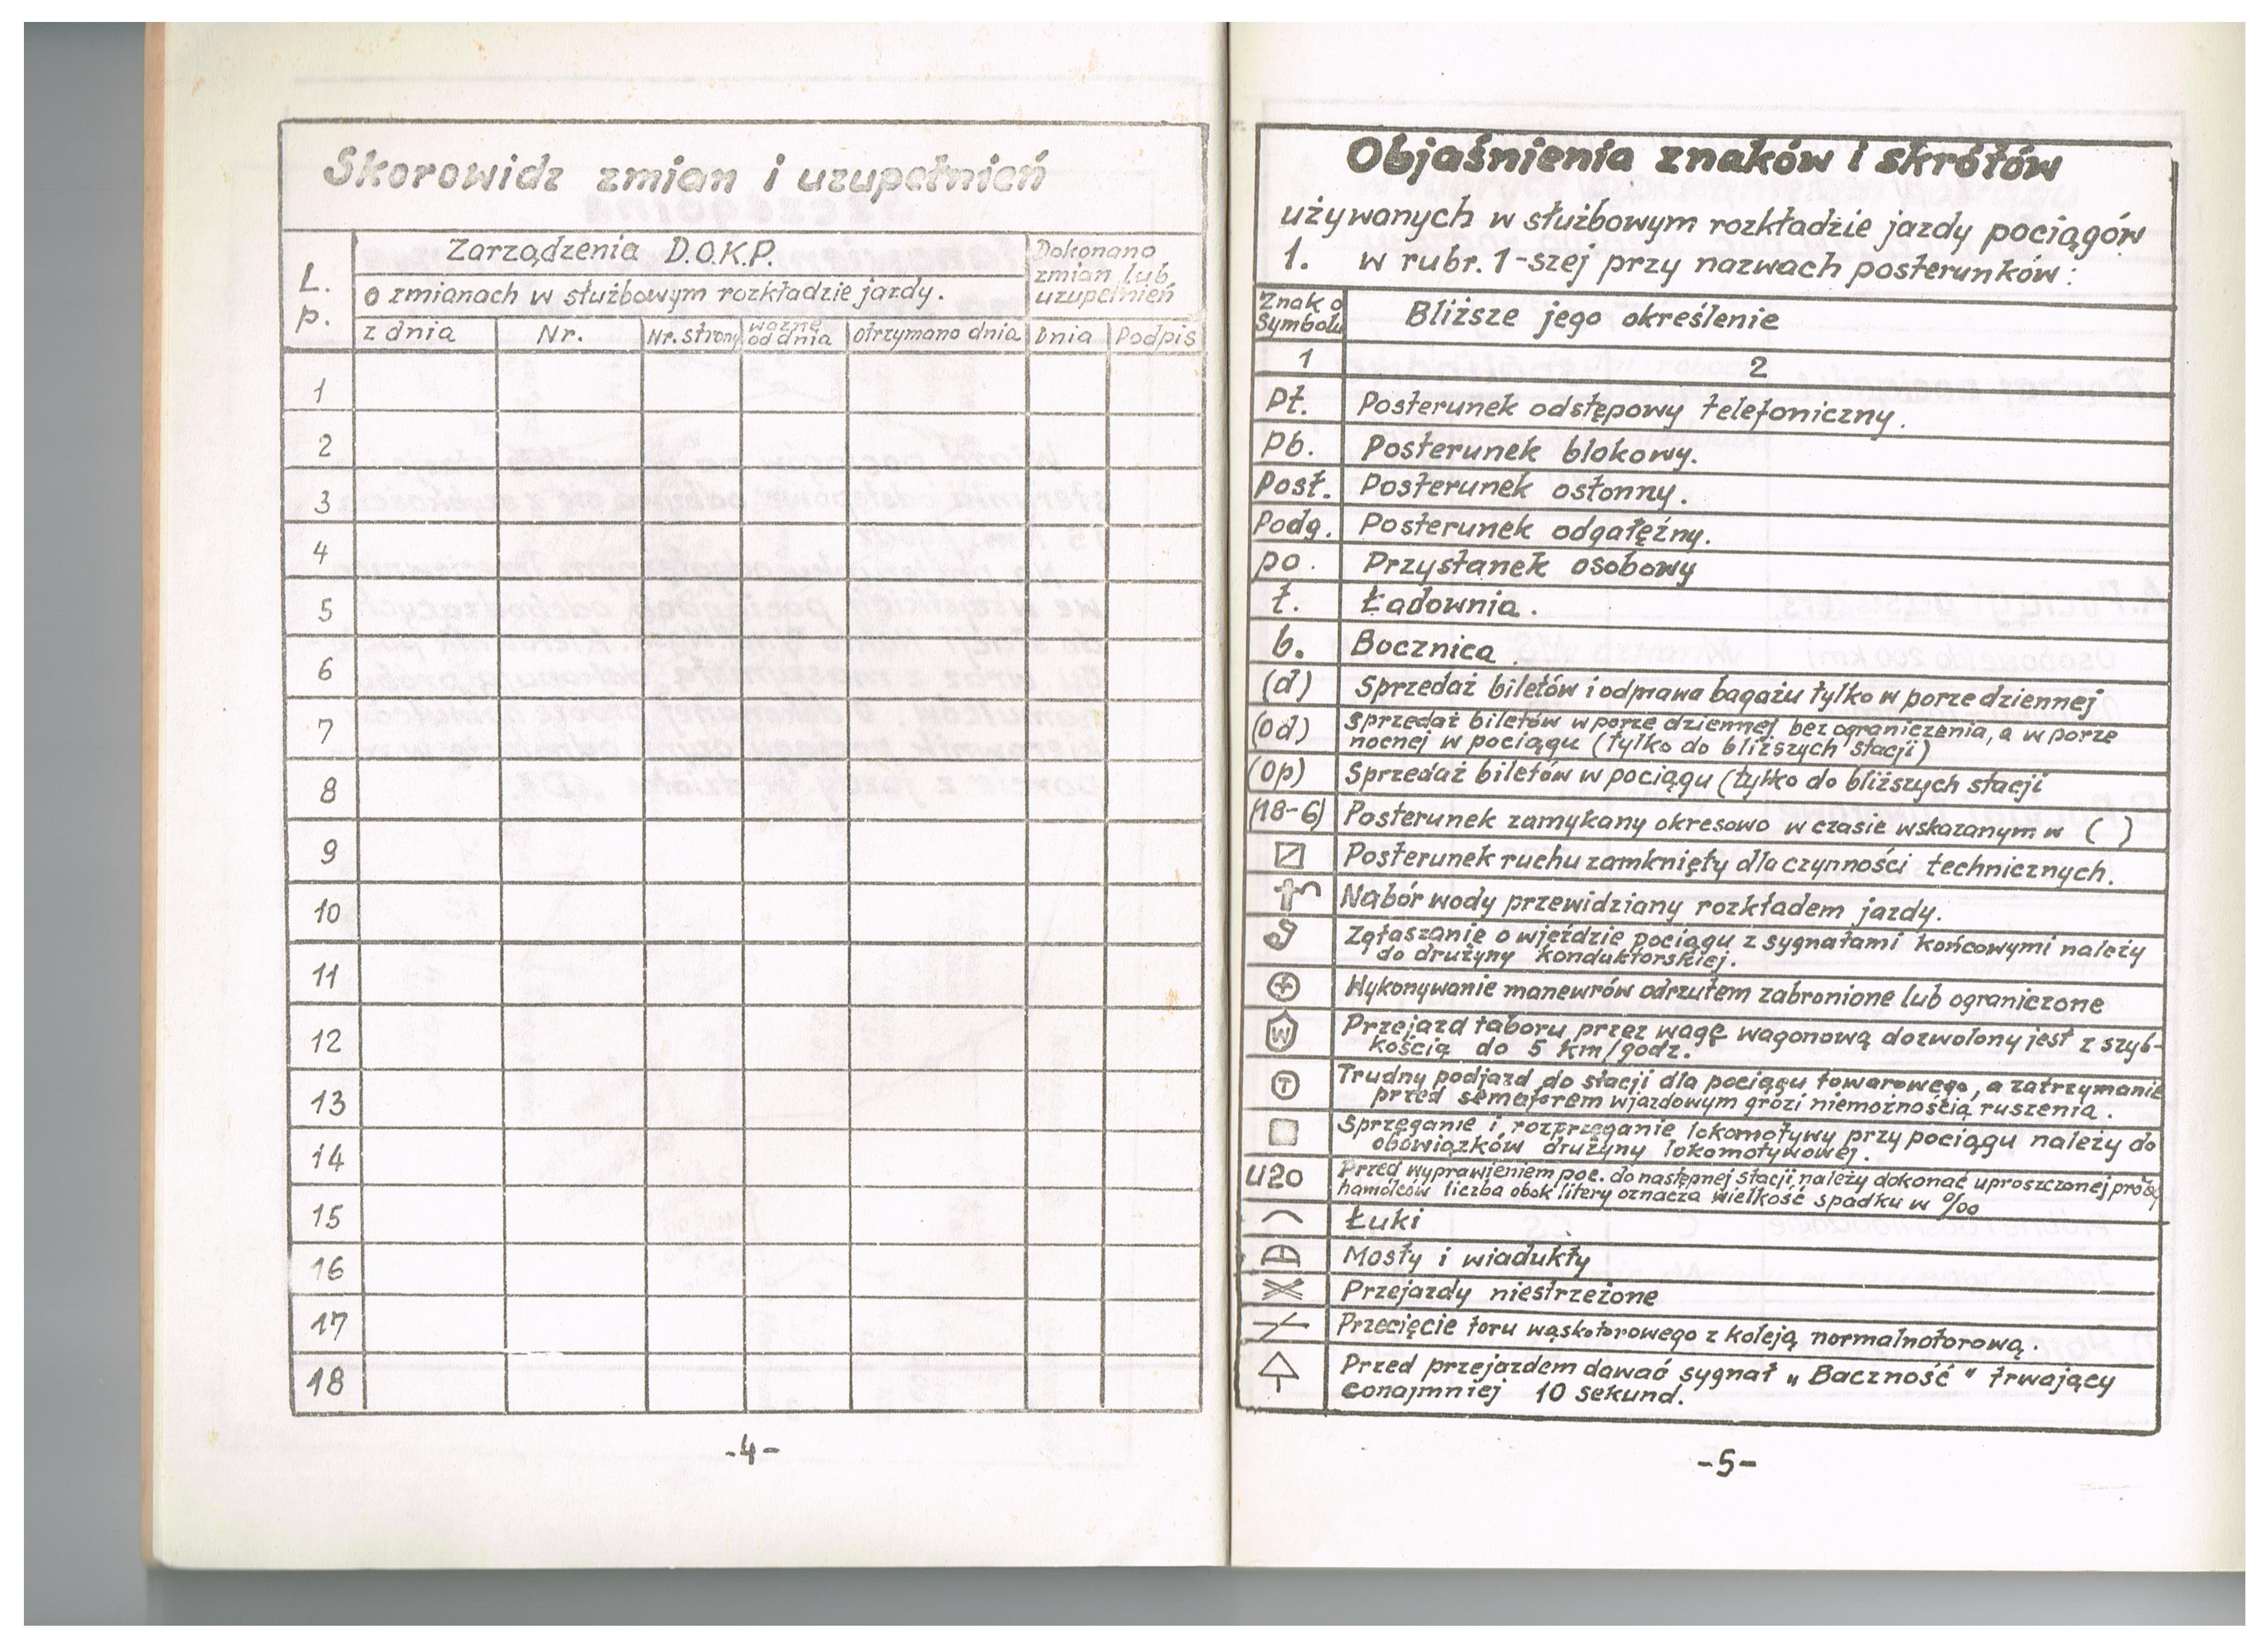 Skorowidz zmian i uzupełnień
L. p.
Zarządzenia D.O.K.P.
o zmianach w służbowym rozkładzie jazdy.
Dokonano
zmian lub
uzupełnień
z dnia Nr. Nr. strony ważne od dnia Otrzymano dnia Dnia Podpis
1
2
3
4
5
6
7
8
9
10
11
12
13
14
15
16
17
18
-4-
Objaśnienia znaków i skrótów
używanych w służbowym rozkładzie jazdy pociągów
1. w rubr. 1-szej przy nazwach posterunków:
Znak o
Symbolu
Bliższe jego określenie
1 2
Pt. Posterunek odstępowy telefoniczny.
Pb. Posterunek blokowy.
Post. Posterunek osłonny.
Podg. Posterunek odgałęźny.
po. Przystanek osobowy
ł. Ładownia.
b. Bocznica
(d) Sprzedaż biletów i odprawa bagażu tylko w porze dziennej
(Od) Sprzedaż biletów w porze dziennej bez ograniczenia, a w porze
nocnej w pociągu (tylko do bliższych stacji)
(Op) Sprzedaż biletów w pociągu (tylko do bliższych stacji
(18-6) Posterunek zamykany okresowo w czasie wskazanym w ( )
Posterunek ruchu zamknięty dla czynności technicznych.
Nabór wody przewidziany rozkładem jazdy.
Zgłaszanie o wjeździe pociągu z sygnałami końcowymi należy
do drużyny konduktorskiej.
Wykonywanie manewrów odrzutem zabronione lub ograniczone
W Przejazd taboru przez wagę wagonową dozwolony jest z szyb-
kością do 5 km/godz.
T Trudny podjazd do stacji dla pociągu towarowego, a zatrzymanie
przed semaforem wjazdowym grozi niemożnością ruszenia.
Sprzęganie i rozprzęganie lokomotywy przy pociągu należy do
obowiązków drużyny lokomotywowej.
U20 Przed wyprawieniem poc. do następnej stacji należy dokonać uproszczonej próby
hamulców liczba obok litery oznacza wielkość spadku w ‰
Łuki
Mosty i wiadukty
Przejazdy niestrzeżone
Przecięcie toru wąskotorowego z koleją normalnotorową.
Przed przejazdem dawać sygnał „Baczność" trwający
conajmniej 10 sekund.
-5-